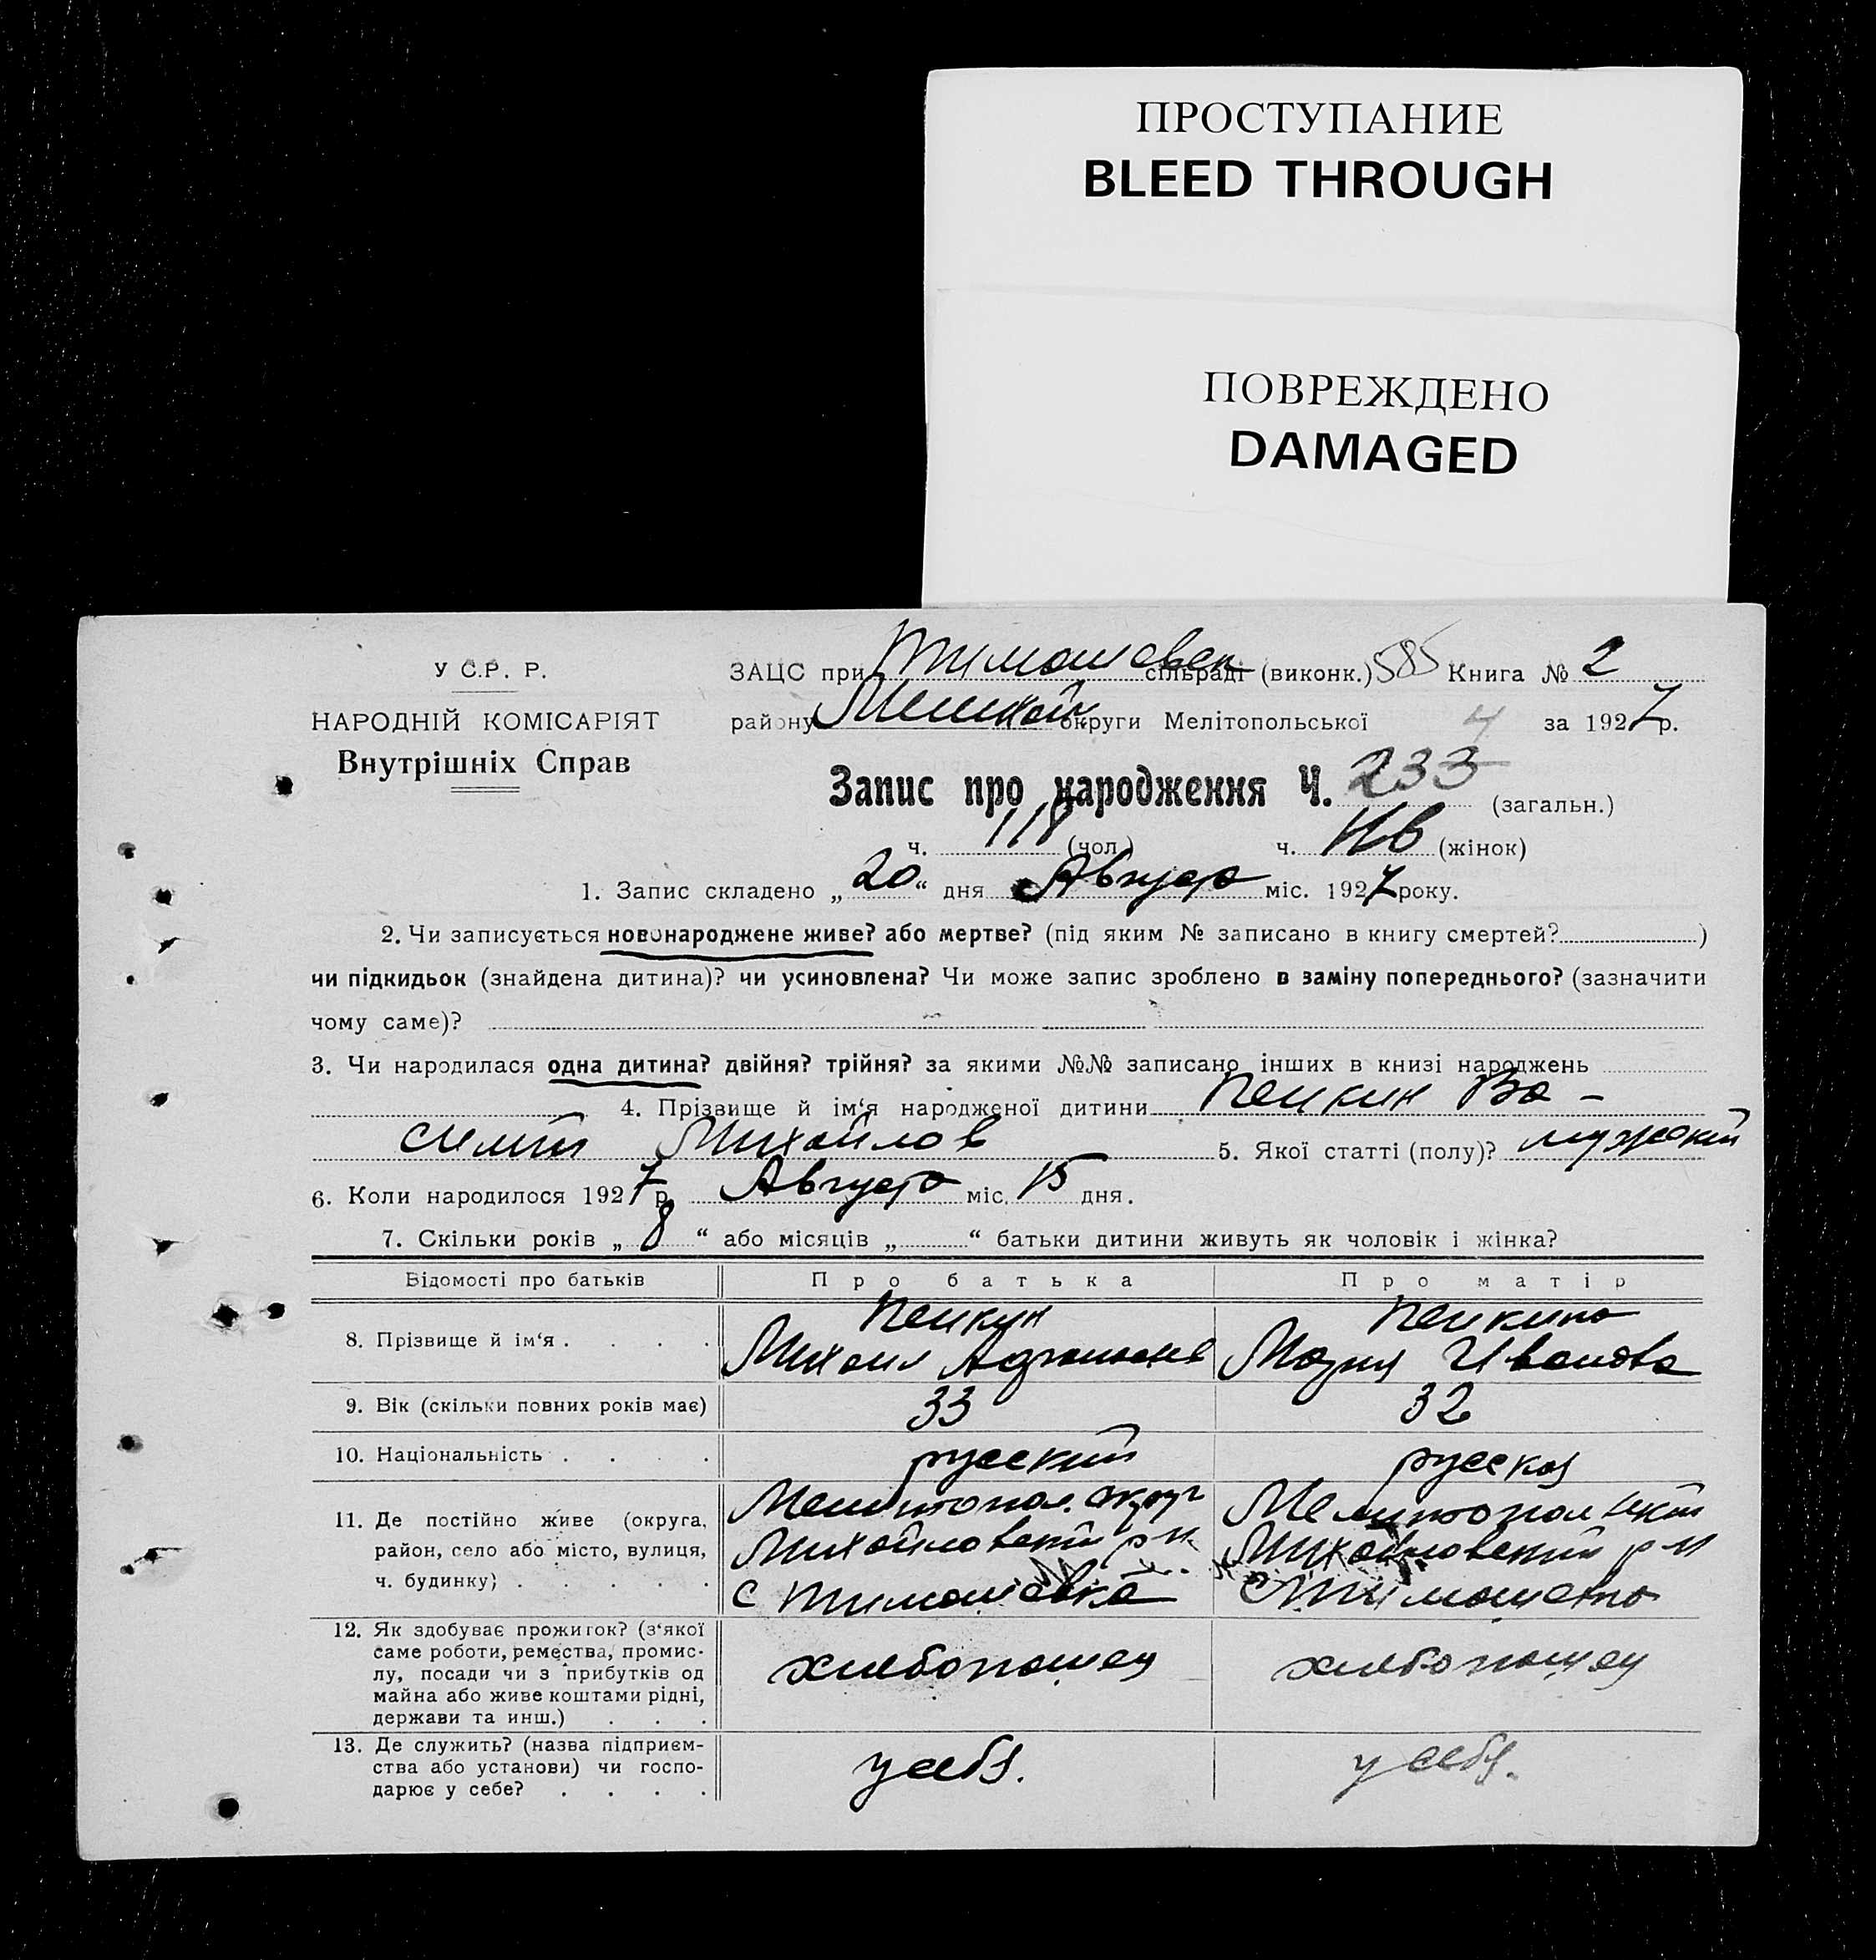 ПРОСТУПАНИЕ
BLEED THROUGH
ПОВРЕЖДЕНО
DAMAGED
У С.Р. Р.
НАРОДНІЙ КОМІСАРІЯТ
Внутрішніх Справ
ЗАЦС при Тимошевск сільраді (виконк.) 585 Книга № 2
району округи Мелітопольської 4 за 1927 р.
Запис про народження Ч. 233 (загальн.)
ч. 118 (чол.) ч. (жінок)
1. Запис складено „ 20 “ дня Августа міс. 1927 року.
2. Чи записується новонароджене живе? або мертве? (під яким № записано в книгу смертей? )
чи підкидьок (знайдена дитина)? чи усиновлена? Чи може запис зроблено в заміну попереднього? (зазначити
чому саме)?
3. Чи народилася одна дитина? двійня? трійня? за якими №№ записано інших в книзі народжень
4. Прізвище й ім‘я народженої дитини Пешкин Ва-
силий Михайлов 5. Якої статті (полу)? мужский
6. Коли народилося 1927 р. Августа міс. 15 дня.
7. Скільки років „ 8 “ або місяців „ “ батьки дитини живуть як чоловік і жінка?
Відомості про батьків Про батька Про матір
8. Прізвище й ім‘я . . . . Пешкин Михаил Пешкина Мария Иванова
9. Вік (скільки повних років має) 33 32
10. Національність . . . . русский русская
11. Де постійно живе (округа, Мелитопол. округ Мелитопольский
район, село або місто, вулиця, Михайловский р н. Михайловский р н
ч. будинку) . . . . . с Тимошевка с Тимошевка
12. Як здобуває прожиток? (з‘якої
саме роботи, ремества, промис-
лу, посади чи з прибутків од хлебопашец хлебопашец
майна або живе коштами рідні,
держави та инш.) . . .
13. Де служить? (назва підприєм-
ства або установи) чи госпо- у себя. у себя.
дарює у себе? . . . .